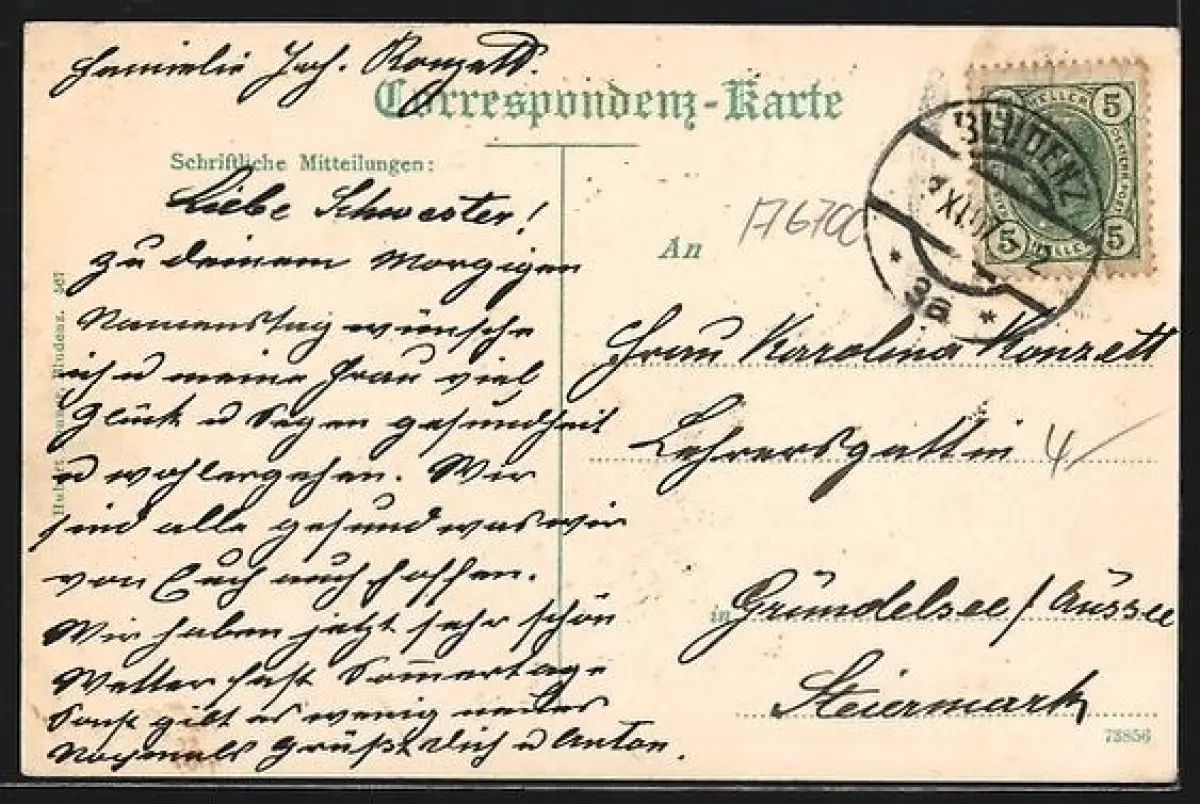 Familie Joh. Konzett.
Correspondenz-Karte
Schriftliche Mitteilungen:
Liebe Schwester!
Zu deinem Morgigen
Namenstag wünsche
ich u meine Frau viel
Glück u Segen gesundheit
u wohlergehen. Wir
sind alle gesund was wir
von Euch auch hoffen.
Wir haben jetzt sehr schön
Wetter fast Som̄ertage
Sonst gibt es wenig neues
Nochmals Grüßt Dich u Anton.
Bludenz. 567
An
176700
Frau Karolina Konzett
Lehrersgattin 4/
in Gründelsee / Aüssee
Steiermark
73856
BLUDENZ
XI.07
* 3a *
5 HELLER 5
5 HELLER 5